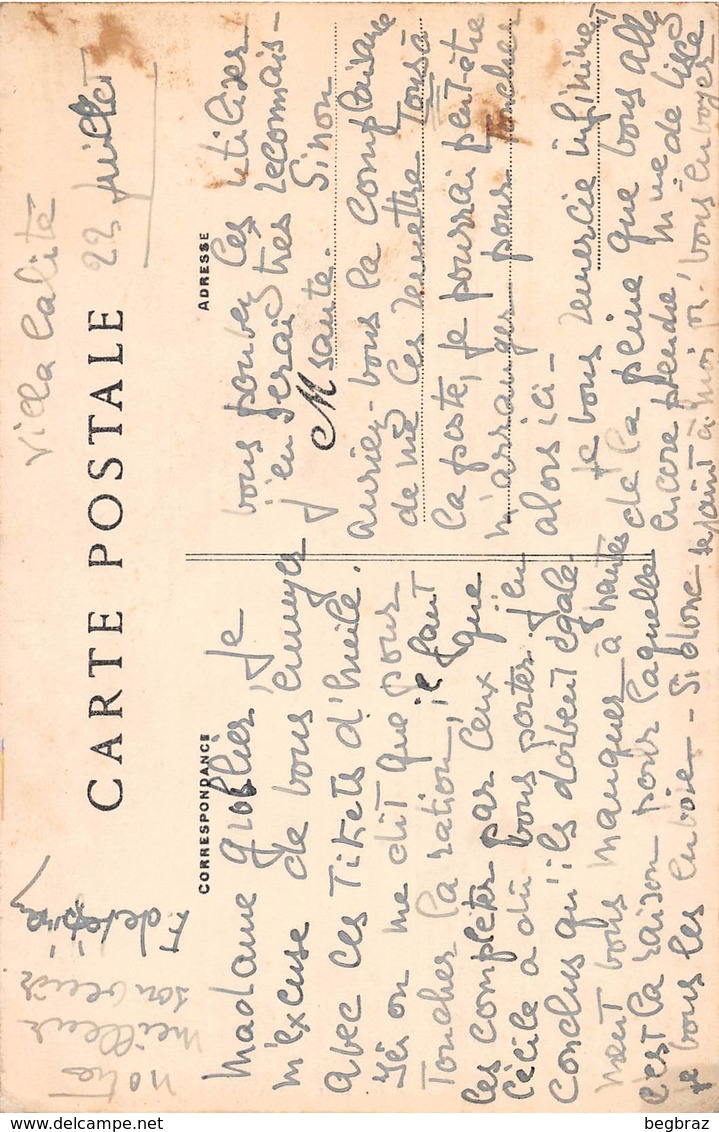 Villa Calité
CARTE POSTALE
22 juillet
CORRESPONDANCE
ADRESSE
Madame Gublier, je
m'excuse de vous ennuyer
avec ces Tikets d'huile.
Ici on me dit que pour
Toucher la ration, il faut
les completer par ceux que
Cécile a dû vous porter. j'en
conclus qu'ils doivent égale-
ment vous manquer à
c'est la raison pour laquelle
je vous les envoie - Si donc
vous pouvez les utiliser
j'en serai très reconnais-
sante. Sinon
auriez-vous la complaisance
de me les remettre Tous à
la poste, je pourrai peut-être
m'arranger pour toucher
alors ici -
Je vous remercie infiniment
de la peine que vous allez
encore prendre, Mme de
se joint à moi pr. vous envoyer
notre
meilleur
souvenir
begbraz